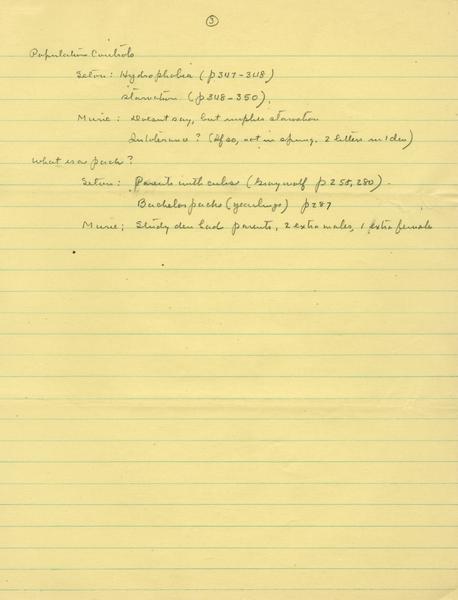 3
Population Controls
Seton: Hydrophobia (p 347-348)
Starvation (p 348-350).
Murie: Doesn't say, but implies starvation
Intolerance? (Also, not in spring. 2 litters in 1 den)
What is a pack?
Seton: Parents with cubs (Gray wolf p 258, 280).
Bachelor packs (yearlings) p 287
Murie; Study den had parents, 2 extra males, 1 extra female